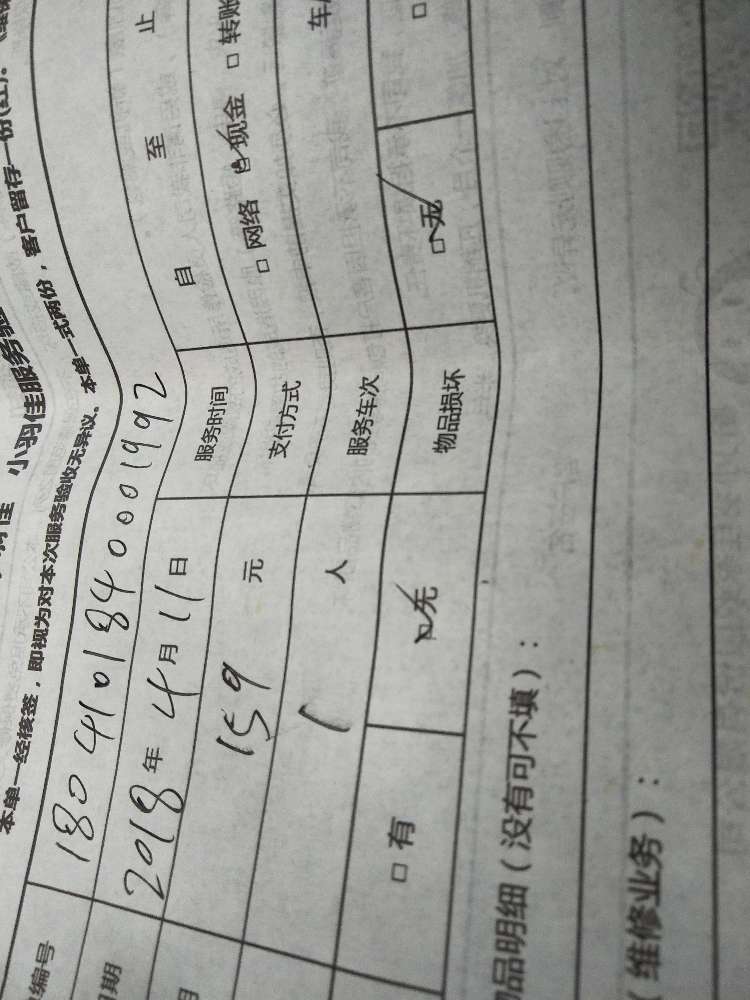 小羽佳服务验
本单一经核签，即视为对本次服务验收无异议。本单一式两份，客户留存一份(红)。
编号 18041018400001992
期 2018年4月11日 服务时间 自 至 止
159元 支付方式 □网络 ☑现金 □转账
1人 服务车次 车
□有 ☑无 物品损坏 ☑无 □
品明细（没有可不填）：
（维修业务）：